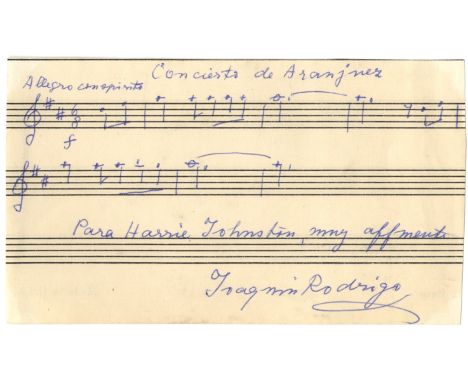 Concierto de Aranjuez
Allegro con spirito
6
8
f
Para Harrie Johnston, muy affmente
Joaquin Rodrigo